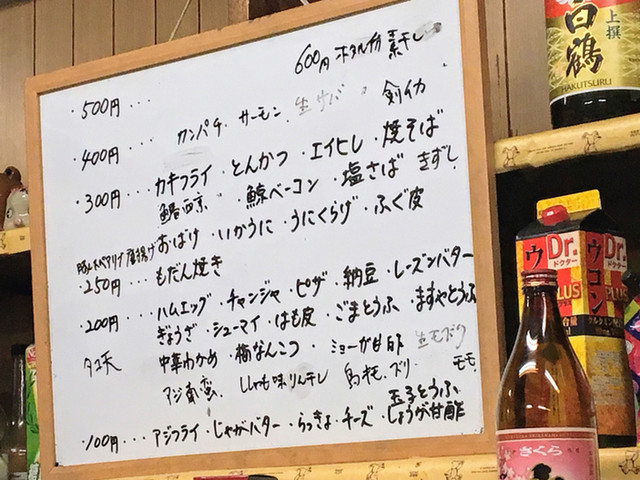 600円 ホタルイカ素干し
・500円・・・
カンパチ・サーモン・生サバ・剣イカ
・400円・・・
・300円・・・カキフライ・とんかつ・エイヒレ・焼そば
鯨ベーコン・塩さば きずし
おばけ・いかうに・うにくらげ・ふぐ皮
・250円・・・もだん焼き
・200円・・・ハムエッグ・チャンジャ・ピザ・納豆・レーズンバター
ぎょうざ・シューマイ・はも皮・ごまとうふ・ますやとうふ
中華わかめ・梅なんこつ・ショーガ甘酢 生モズク
アジ南蛮
モモ
玉子とうふ
・100円・・・アジフライ・じゃがバター・らっきょ・チーズ・しょうが甘酢
上撰
白鶴
HAKUTSURU
Dr.
ドクター
ウコン
PLUS
さくら